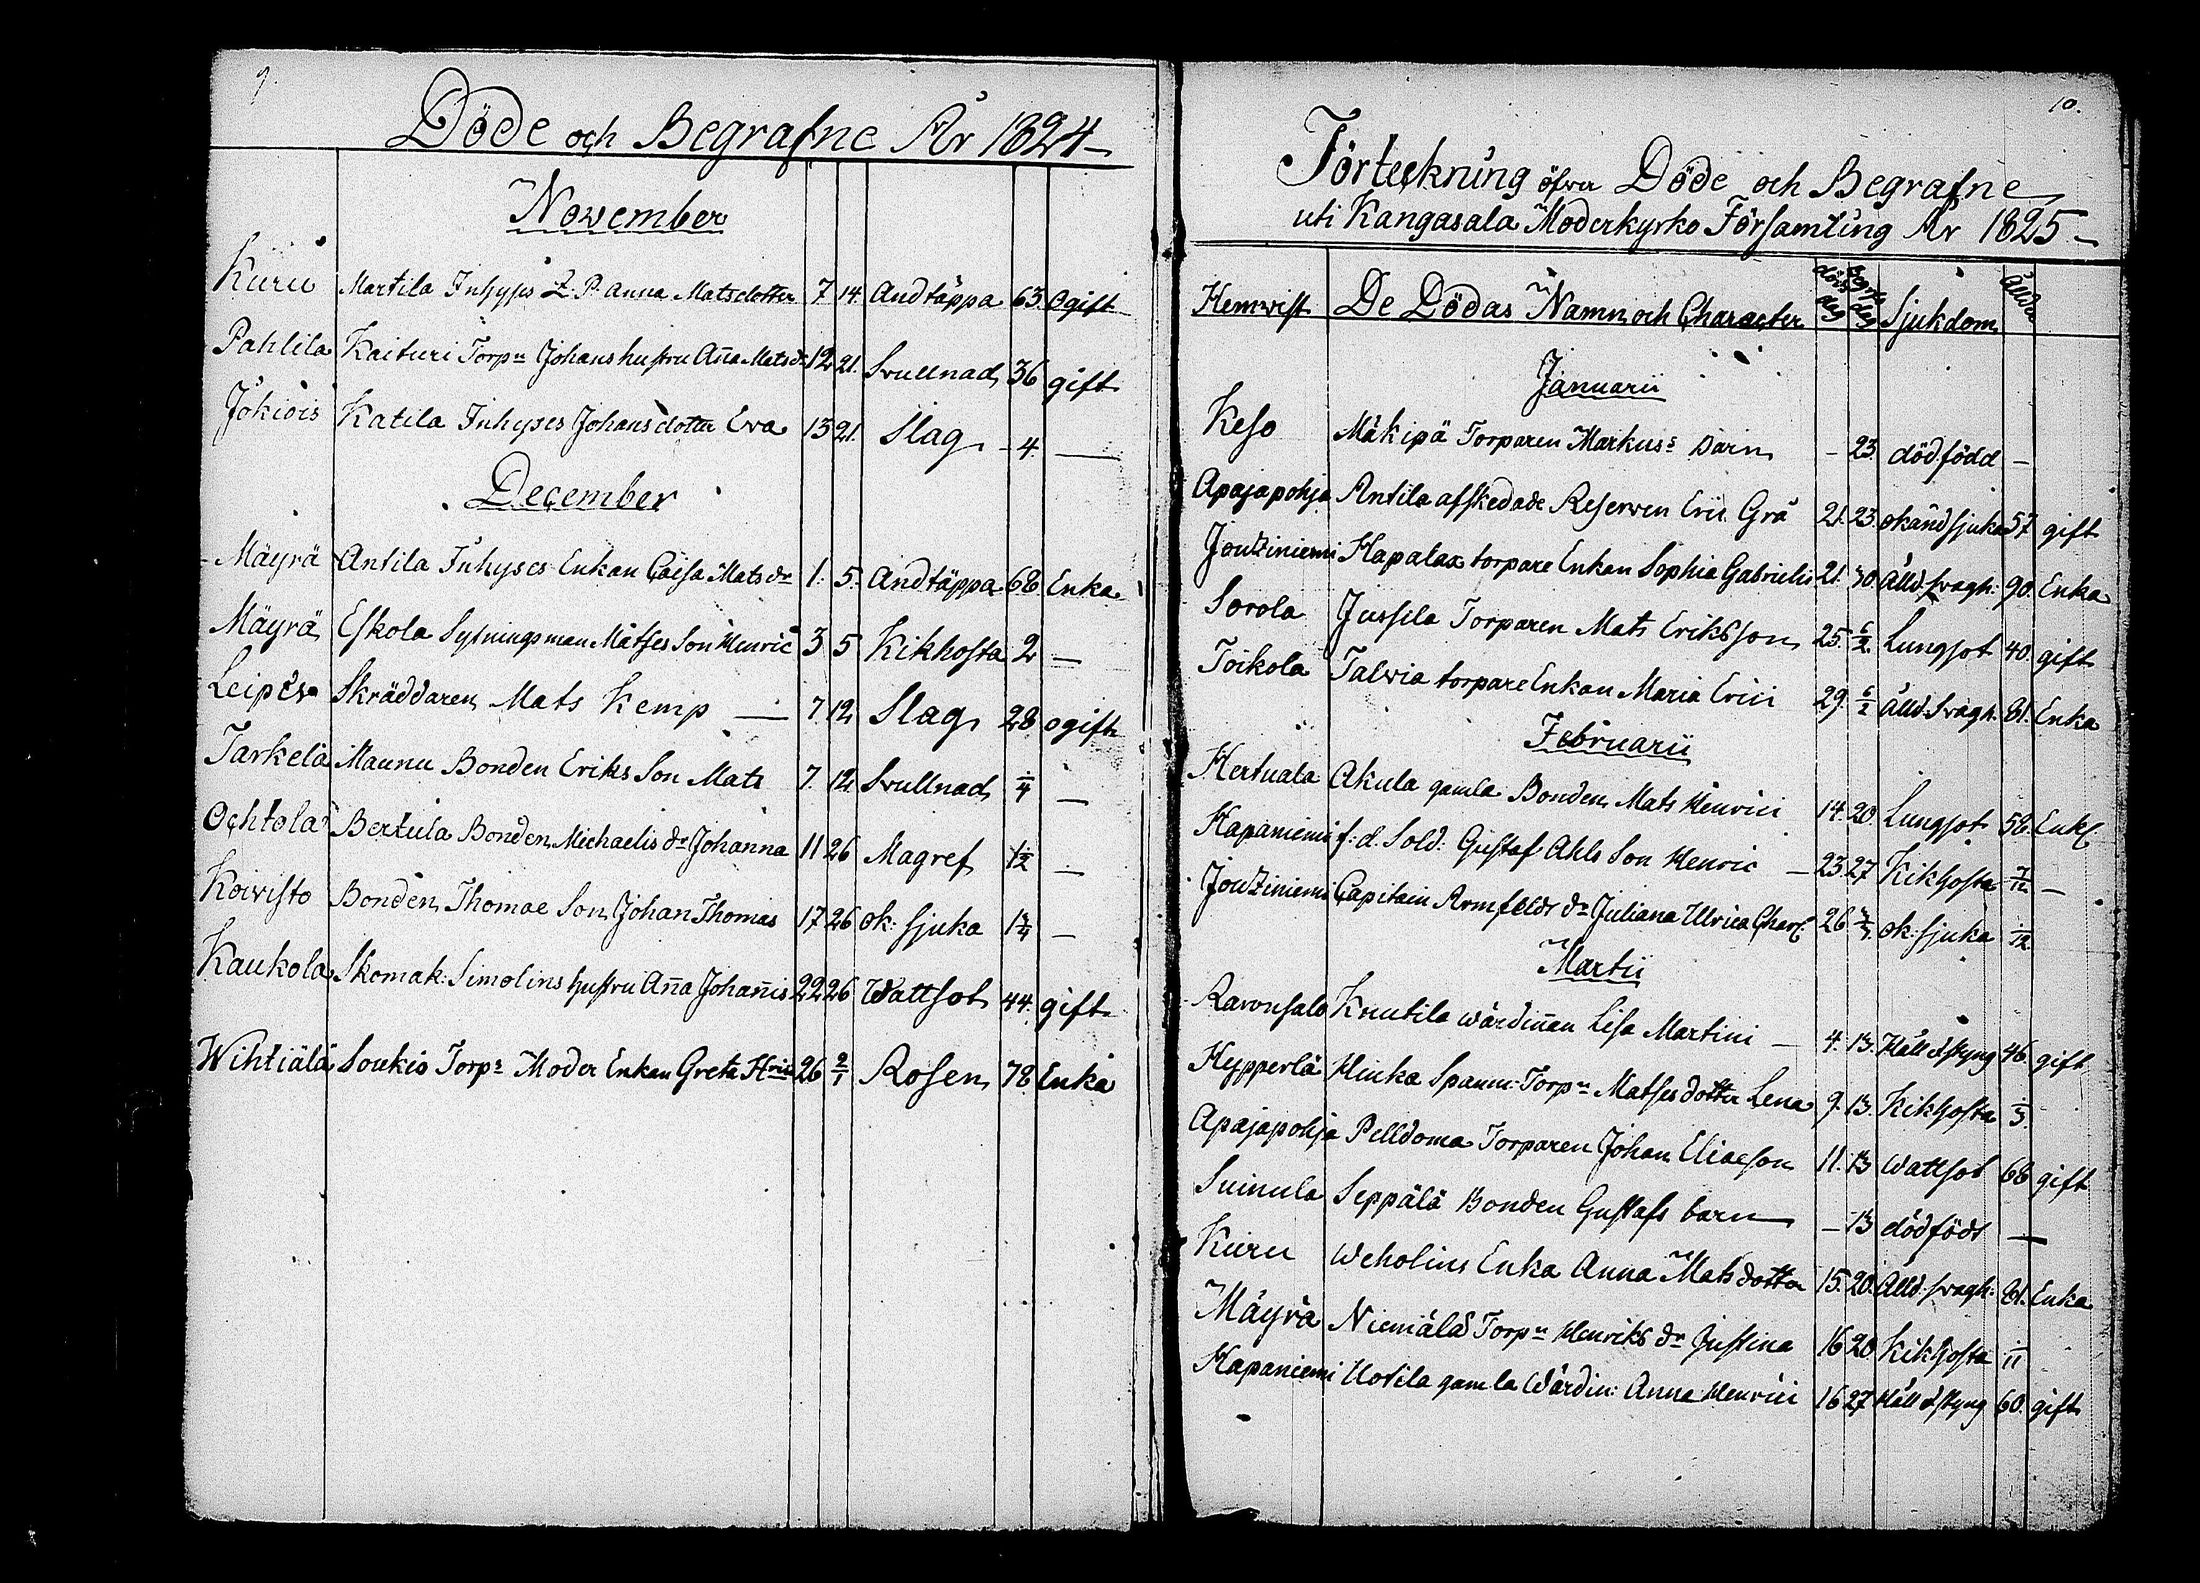 9.
Döde och Begrafne År 1824
November
Kuru Martila Inhyses Z. P. Anna Matsdotter 7 14. Andtäppa 63. Ogift
Pahlila Kaituri Torpn Johans hustru Aña Matsdr 12 21. Svullnad 36 gift
Jokiois Katila Inhyses Johans dotter Eva 13 21. Slag - 4. —
December
Mäyrä Antila Inhyses Enkan Caisa Matsdr 1. 5. Andtäppa 68. Enka
Mäyrä Eskola Sytningsman Matses Son Henric 3 5 Kikhosta 2 —
Skräddaren Mats Kemp — 7. 12 Slag 28 ogift
Tarkela Maunu Bonden Eriks Son Mats 7. 12 Svullnad 1/4 —
Ochtola Bertula Bonden Michaelis dr Johanna 11 26 Magref 1/2 —
Koivisto Bonden Thomae Son Johan Thomas 17 26 ok: sjuka 1 3/4 —
Kaukola Skomak: Simolins hustru Aña Johañis 22 26 Wattsot 44. gift
Wihtiälä Soukio Torps Moder Enkan Greta Hrici 26 2/1 Rosen 78 Enka
10.
Förteckning öfver Döde och Begrafne
uti Kangasala Moderkyrko Församling År 1825
Hemvist De Dödas Namn och Character döds dag begrs dag Sjukdom Ålder
Januarii
Keso Mäkipä Torparen Markuss Barn - 23 dödfödd —
Apajapohja Antila afskedade Reserven Eric Grå 21. 23. okänd sjuka 57 gift
Joutziniemi Hapalax torpare Enkan Sophia Gabrielis 21. 30. Ålld. svagh: 90. Enka
Sorola Jussila Torparen Mats Eriksson 25. 6/2. Lungsot 40. gift
Toikola Talvia torpare Enkan Maria Erici 29. 6/2 Ålld: Svagh. 81. Enka
Februarii
Hertuala Akula gamla Bonden Mats Henrici 14. 20. Lungsot 58. Enkl
Hapaniemi f: d. Sold: Gustaf Ahls Son Henric — 23 27 Kikhosta 7/12 —
Joutziniemi Capitain Armfeldts dr Juliana Ulrica Charl. 26 ok: sjuka 1/12
Martii
Ravonsalo Knutila wärdiñan Lisa Martini — 4. 13. Håll o styng 46. gift
Hypperlä Hinka Spanm: Torpn Matses dotter Lena 9. 13. Kikhosta 1/3
Apajapohja Pelldoma Torparen Johan Eliæson 11. 13 Wattsot 68 gift
Suinula Seppälä Bonden Gustafs barn — 13 dödfödt —
Kuru Weholins Enka Anna Matsdotter 15. 20. Ålld: svagh: 81. Enka
Mäyrä Niemälä Torpn Henriks dr Justina 16 20 Kikhosta 1/11
Hapaniemi Uotila gamla Wärdin: Anna Henrici 16 27 Håll o styng 60. gift